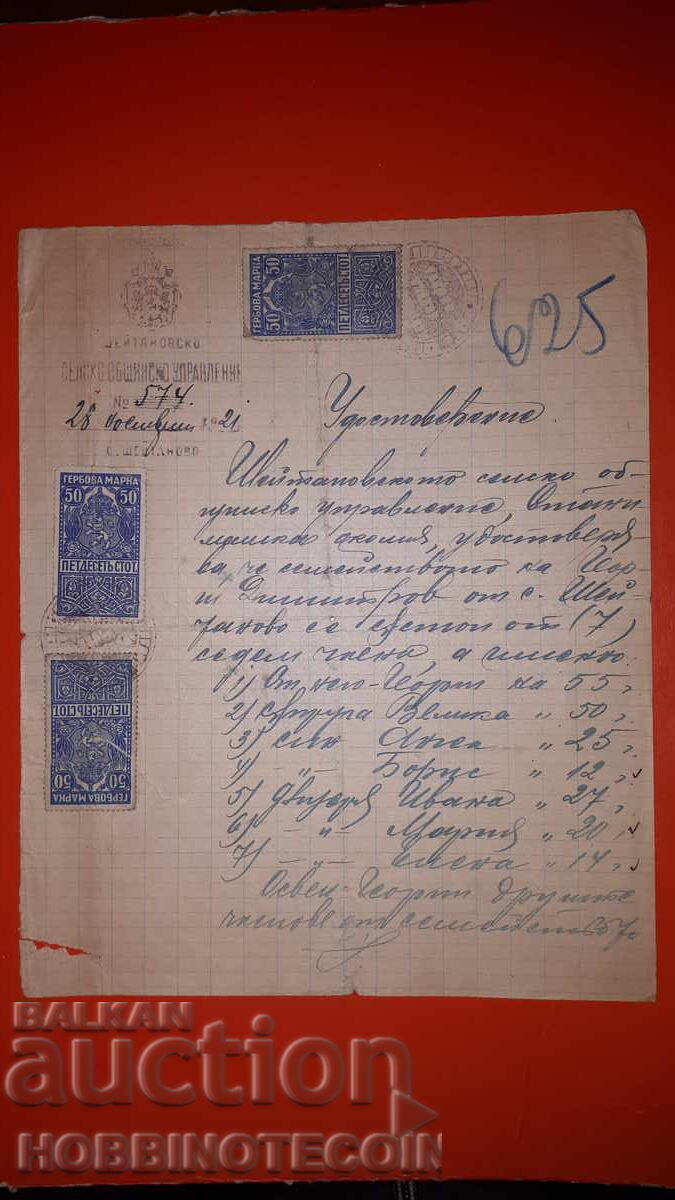 ГЕРБОВА МАРКА
50 50
ПЕТДЕСЕТЬ СТОТ.
625
ШЕЙТАНОВСКО
СЕЛСКО ОБЩИНСКО УПРАВЛЕНИЕ
№ 574
28 1921
С. ШЕЙТАНОВО
Удостоверение
Шейтановското селско об-
щинско управление, Стани-
машка околия, удостоверя-
ва, че семейството на Геор-
ги Димитров от с. Шей-
таново се състои от (7)
седем члена, а именно:
1) От него - Георги на 55 г.
2) Съпруга Велика " 50 г.
3) син " 25 г.
4) - " - Борис " 12 г.
5) дъщеря Ивана " 27 г.
6) - " - Мария " 20 г.
7) - " - Елена " 14 г.
Освен Георги другите
членове от семейството
ГЕРБОВА МАРКА
50 50
ПЕТДЕСЕТЬ СТОТ.
ГЕРБОВА МАРКА
50 50
ПЕТДЕСЕТЬ СТОТ.
BALKAN
auction
HOBBINOTECOIN